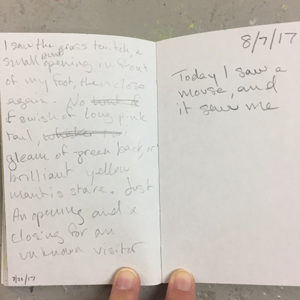 I saw the grass twitch, a
small opening in front
of my foot, then close
again. No
swish of long pink
tail,
gleam of green back or
brilliant yellow
mantis stare. Just
An opening and a
closing for an
unknown visitor
8/7/17
Today I saw a
mouse, and
it saw me